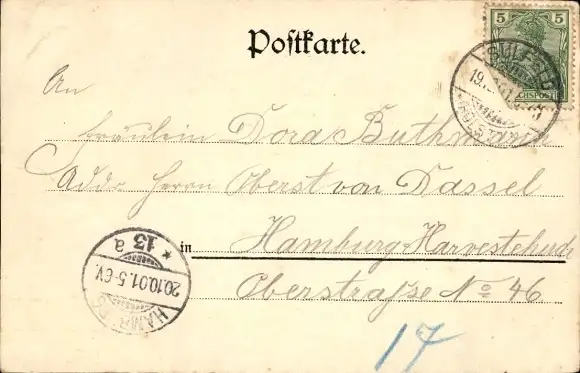 Postkarte.
5
REICHSPOST
19.
An
Fräulein Dora
Addr. Herrn Oberst von Dassel
in Hamburg Harvestehude
Oberstraße No 46
* 13 a
20.10.01.5-6V.
HAMBURG
17